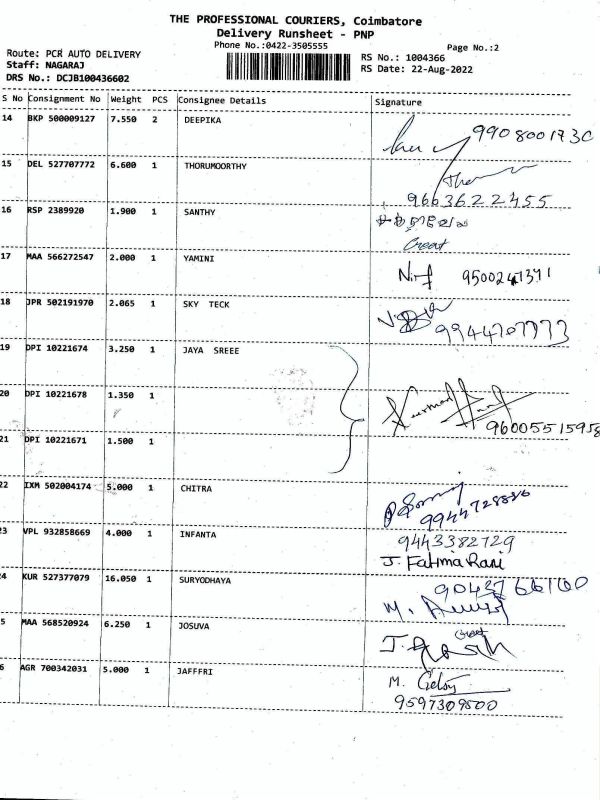 THE PROFESSIONAL COURIERS, Coimbatore
Delivery Runsheet - PNP
Phone No.:0422-3505555
Page No.:2
Route: PCR AUTO DELIVERY
RS No.: 1004366
Staff: NAGARAJ
RS Date: 22-Aug-2022
DRS No.: DCJB100436602
S No Consignment No Weight PCS Consignee Details Signature
14 BKP 500009127 7.550 2 DEEPIKA
15 DEL 527707772 6.600 1 THORUMOORTHY
9663622455
16 RSP 2389920 1.900 1 SANTHY
17 MAA 566272547 2.000 1 YAMINI
18 JPR 502191970 2.065 1 SKY TECK
19 DPI 10221674 3.250 1 JAYA SREEE
20 DPI 10221678 1.350 1
96005515958
21 DPI 10221671 1.500 1
22 IXM 502004174 5.000 1 CHITRA
9944728886
23 VPL 932858669 4.000 1 INFANTA
9443382729
J. Fatima Rani
24 KUR 527377079 16.050 1 SURYODHAYA
5 MAA 568520924 6.250 1 JOSUVA
6 AGR 700342031 5.000 1 JAFFFRI
9597309500